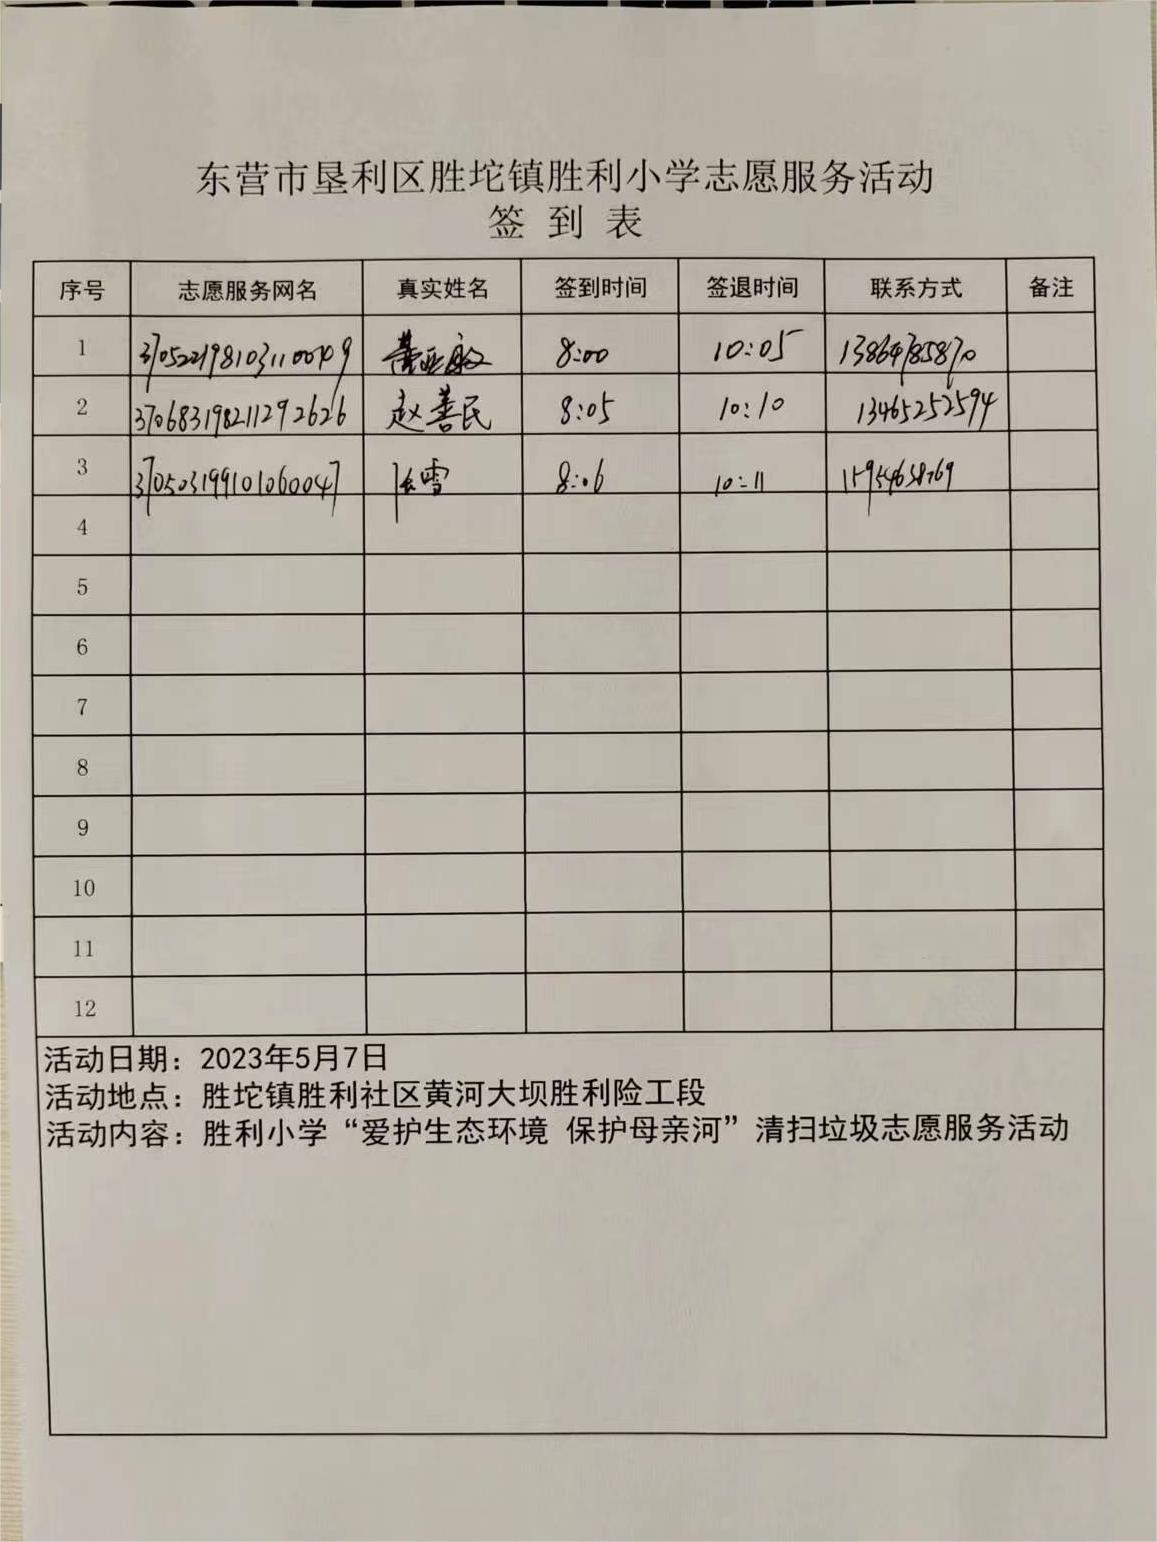 东营市垦利区胜坨镇胜利小学志愿服务活动
签 到 表
序号 志愿服务网名 真实姓名 签到时间 签退时间 联系方式 备注
1 8:00 10:05 13864785870
2 370683198211292626 赵善民 8:05 10:10 13465252594
3 370503199101060047 张雪 8:06 10:11
4
5
6
7
8
9
10
11
12
活动日期：2023年5月7日
活动地点：胜坨镇胜利社区黄河大坝胜利险工段
活动内容：胜利小学“爱护生态环境 保护母亲河”清扫垃圾志愿服务活动